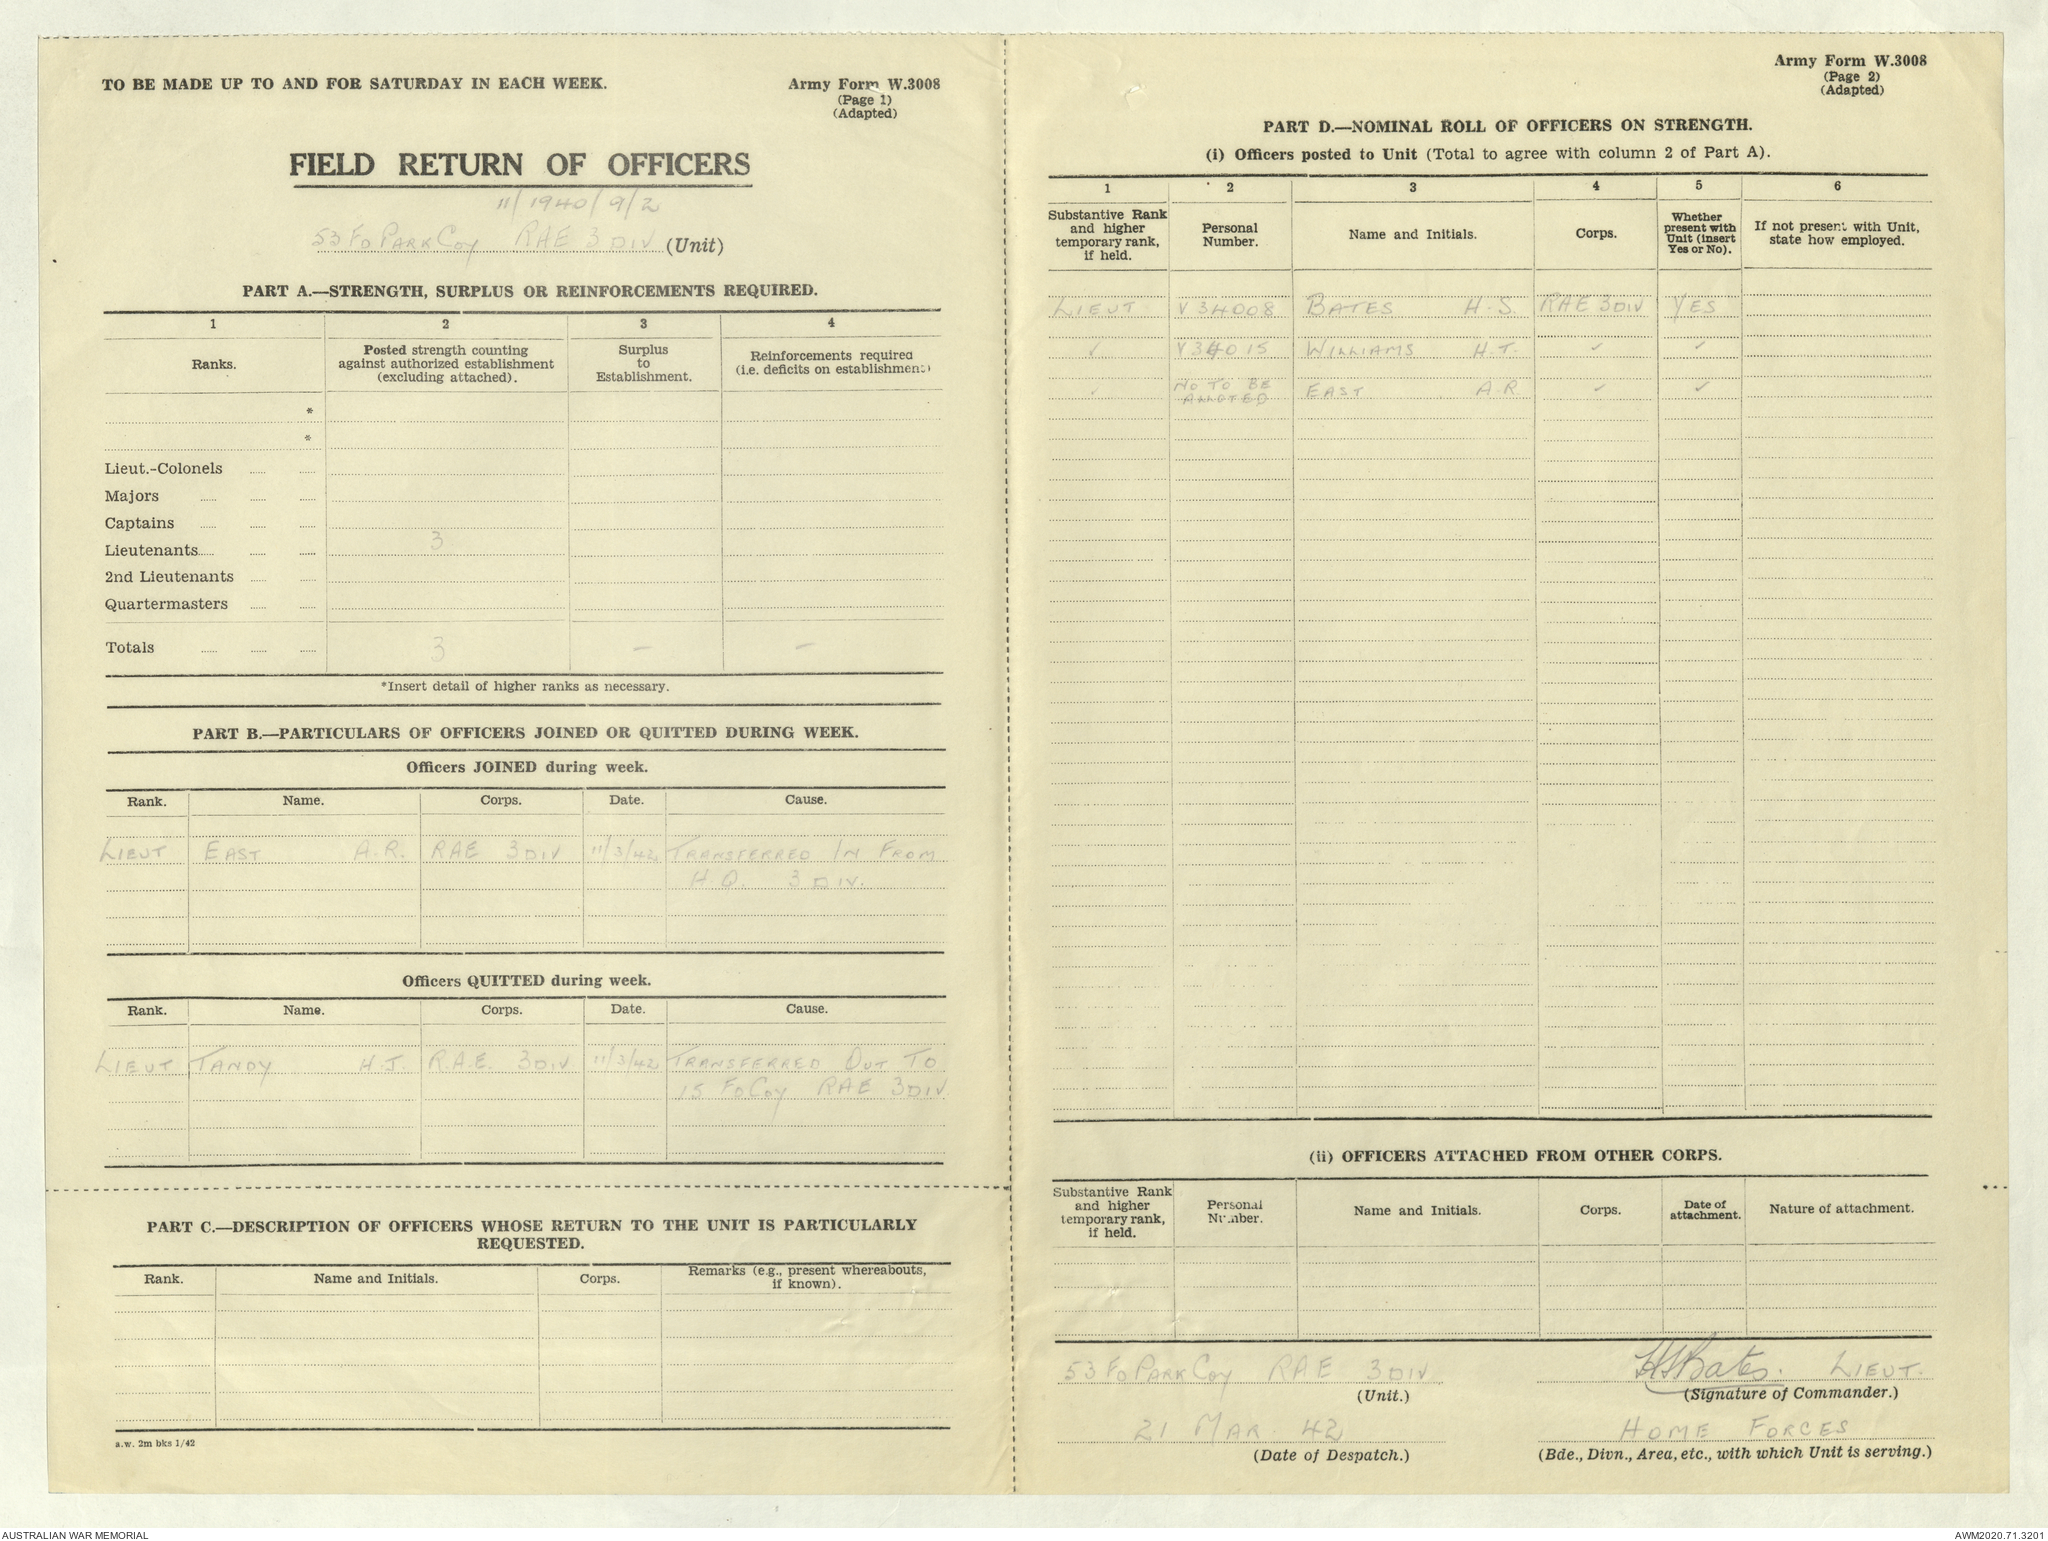 TO BE MADE UP TO AND FOR SATURDAY IN EACH WEEK.
Army Form W.3008
(Page 1)
(Adapted)
FIELD RETURN OF OFFICERS
11/1940/9/2
53 FD PARK COY RAE 3 DIV (Unit)
PART A.—STRENGTH, SURPLUS OR REINFORCEMENTS REQUIRED.
1 2 3 4
Ranks. Posted strength counting against authorized establishment (excluding attached). Surplus to Establishment. Reinforcements required (i.e. deficits on establishment)
*
*
Lieut.-Colonels
Majors
Captains
Lieutenants 3
2nd Lieutenants
Quartermasters
Totals 3 – –
*Insert detail of higher ranks as necessary.
PART B.—PARTICULARS OF OFFICERS JOINED OR QUITTED DURING WEEK.
Officers JOINED during week.
Rank. Name. Corps. Date. Cause.
LIEUT EAST A.R. RAE 3 DIV 11/3/42 TRANSFERRED IN FROM
H.Q. 3 DIV.
Officers QUITTED during week.
Rank. Name. Corps. Date. Cause.
LIEUT TANDY H.J. R.A.E. 3 DIV 11/3/42 TRANSFERRED OUT TO
15 FD COY RAE 3 DIV
PART C.—DESCRIPTION OF OFFICERS WHOSE RETURN TO THE UNIT IS PARTICULARLY
REQUESTED.
Rank. Name and Initials. Corps. Remarks (e.g., present whereabouts, if known).
a.w. 2m bks 1/42
Army Form W.3008
(Page 2)
(Adapted)
PART D.—NOMINAL ROLL OF OFFICERS ON STRENGTH.
(i) Officers posted to Unit (Total to agree with column 2 of Part A).
1 2 3 4 5 6
Substantive Rank and higher temporary rank, if held. Personal Number. Name and Initials. Corps. Whether present with Unit (insert Yes or No). If not present with Unit, state how employed.
LIEUT V34008 BATES H.S. RAE 3 DIV YES
✓ V34015 WILLIAMS H.T. ✓ ✓
✓ NO TO BE ALLOTED EAST A.R ✓ ✓
(ii) OFFICERS ATTACHED FROM OTHER CORPS.
Substantive Rank and higher temporary rank, if held. Personal Number. Name and Initials. Corps. Date of attachment. Nature of attachment.
53 FD PARK COY RAE 3 DIV
(Unit.)
HSBates. LIEUT.
(Signature of Commander.)
21 MAR 42
(Date of Despatch.)
HOME FORCES
(Bde., Divn., Area, etc., with which Unit is serving.)
AUSTRALIAN WAR MEMORIAL
AWM2020.71.3201